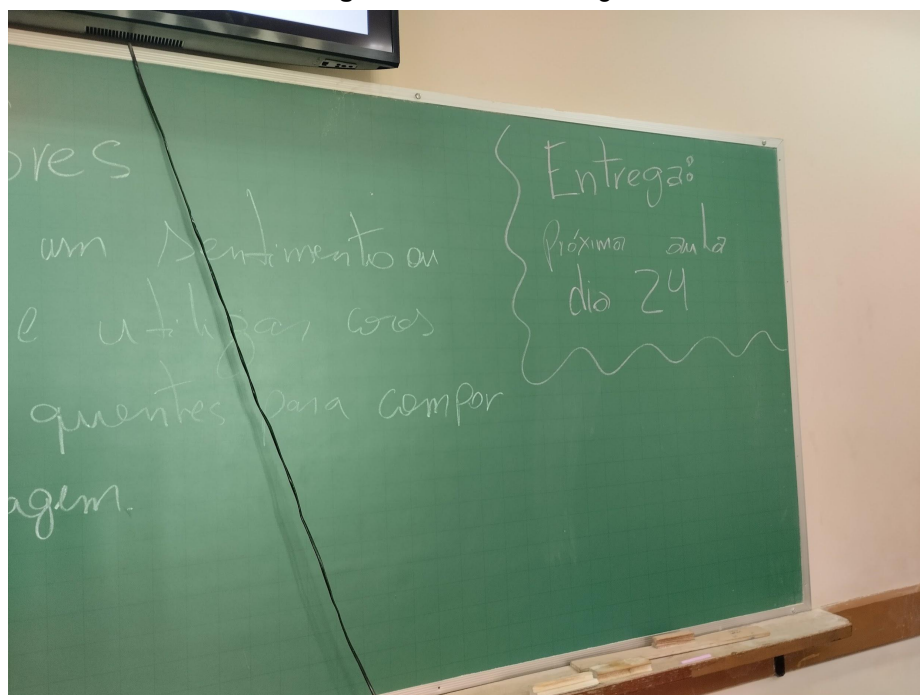 ores
um sentimento ou
e utilizar cores
quentes para compor
agem.
Entrega:
Próxima aula
dia 24